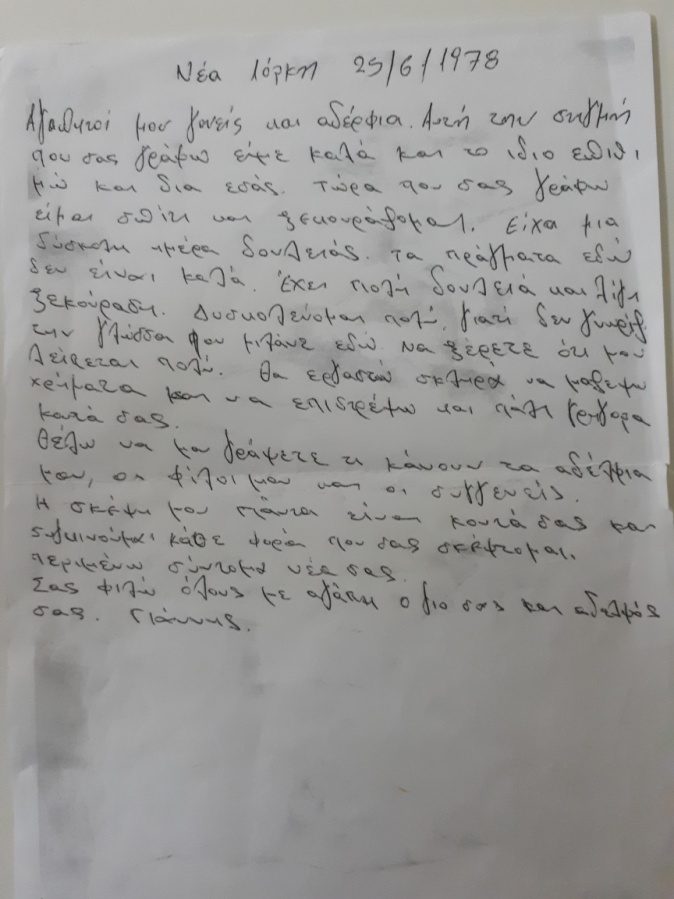 Νέα Υόρκη 25/6/1978
Αγαπητοί μου γονείς και αδέρφια. Αυτή την στιγμή
που σας γράφω είμε καλά και το ιδιο επιθι
μώ και δια εσάς. Τώρα που σας γράφω
είμαι σπίτι και ξεκουράζομαι. Είχα μια
δύσκολη ημέρα δουλειάς. τα πράγματα εδώ
δεν είναι καλά. Έχει πολή δουλειά και λίγη
ξεκούραση. Δυσκολεύομαι πολύ, γιατί δεν γνωρίζω
την γλώσσα που μιλάνε εδώ. Να ξέρετε ότι μου
λείπεται πολύ. Θα εργαστώ σκληρά να μαζέψω
χρήματα και να επιστρέψω και πάλι γρήγορα
κατά σας.
Θέλω να μου γράψετε τι κάνουν τα αδέλφια
μου, οι φίλοι μου και οι συγγενείς.
Η σκέψη μου πάντα είναι κοντά σας και
συγκινούμαι κάθε φορά που σας σκέφτομαι.
περιμένω σύντομα νέα σας.
Σας φιλώ όλους με αγάπη ο γιο σας και αδελφός
σας. Γιάννης.